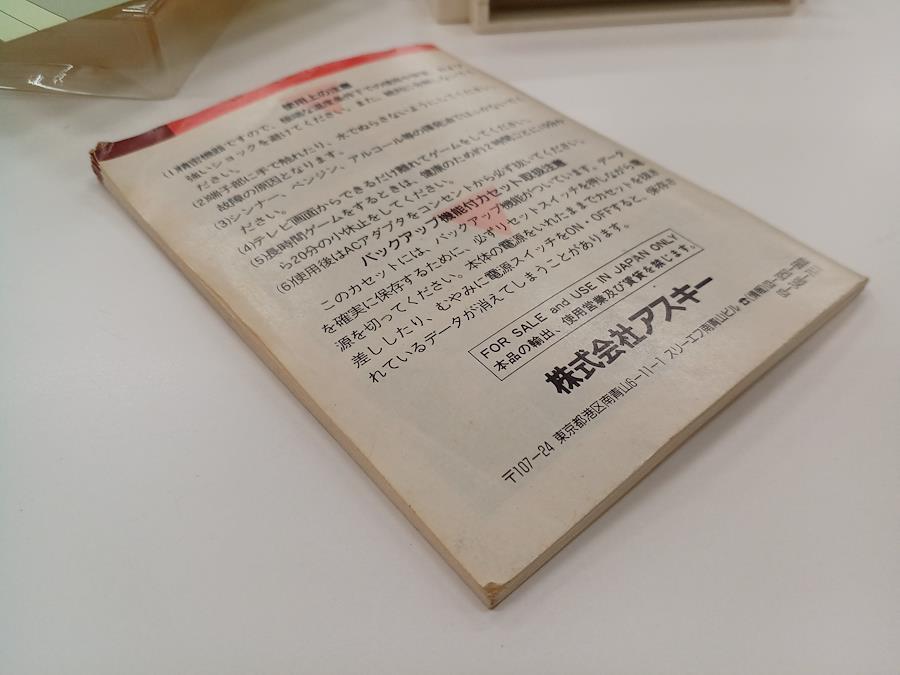 使用上の注意
(1)精密機器ですので、極端な温度条件下での使用や保管、および
強いショックを避けてください。また、絶対に分解しないでく
ださい。
(2)端子部に手で触れたり、水でぬらさないようにしてください。
故障の原因となります。
(3)シンナー、ベンジン、アルコール等の揮発油でふかないでく
ださい。
(4)テレビ画面からできるだけ離れてゲームをしてください。
(5)長時間ゲームをするときは、健康のため約2時間ごとに10分か
ら20分の小休止をしてください。
(6)使用後はACアダプタをコンセントから必ず抜いてください。
バックアップ機能付カセット取扱注意
このカセットには、バックアップ機能がついています。データ
を確実に保存するために、必ずリセットスイッチを押しながら電
源を切ってください。本体の電源をいれたままでカセットを抜き
差ししたり、むやみに電源スイッチをON・OFFすると、保存さ
れているデータが消えてしまうことがあります。
FOR SALE and USE IN JAPAN ONLY
本品の輸出、使用営業及び賃貸を禁じます。
株式会社アスキー
〒107-24 東京都港区南青山6-11-1 スリーエフ南青山ビル